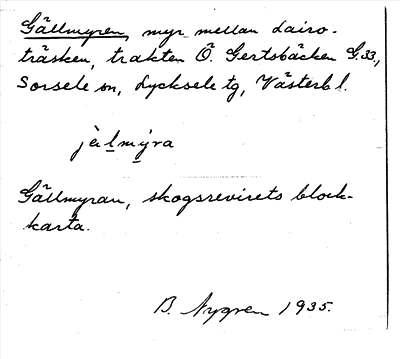 Gällmyren, myr mellan Lairo-
träsken, trakten Ö. Gertsbäcken G.33,
Sorsele sn, Lycksele tg, Västerb l.
jèlmýra
Gällmyran, skogsrevirets block-
karta.
B. Nygren 1935.